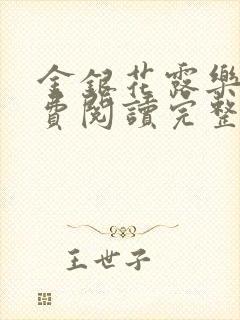 金銀花露樂
費閱讀完整
王世子